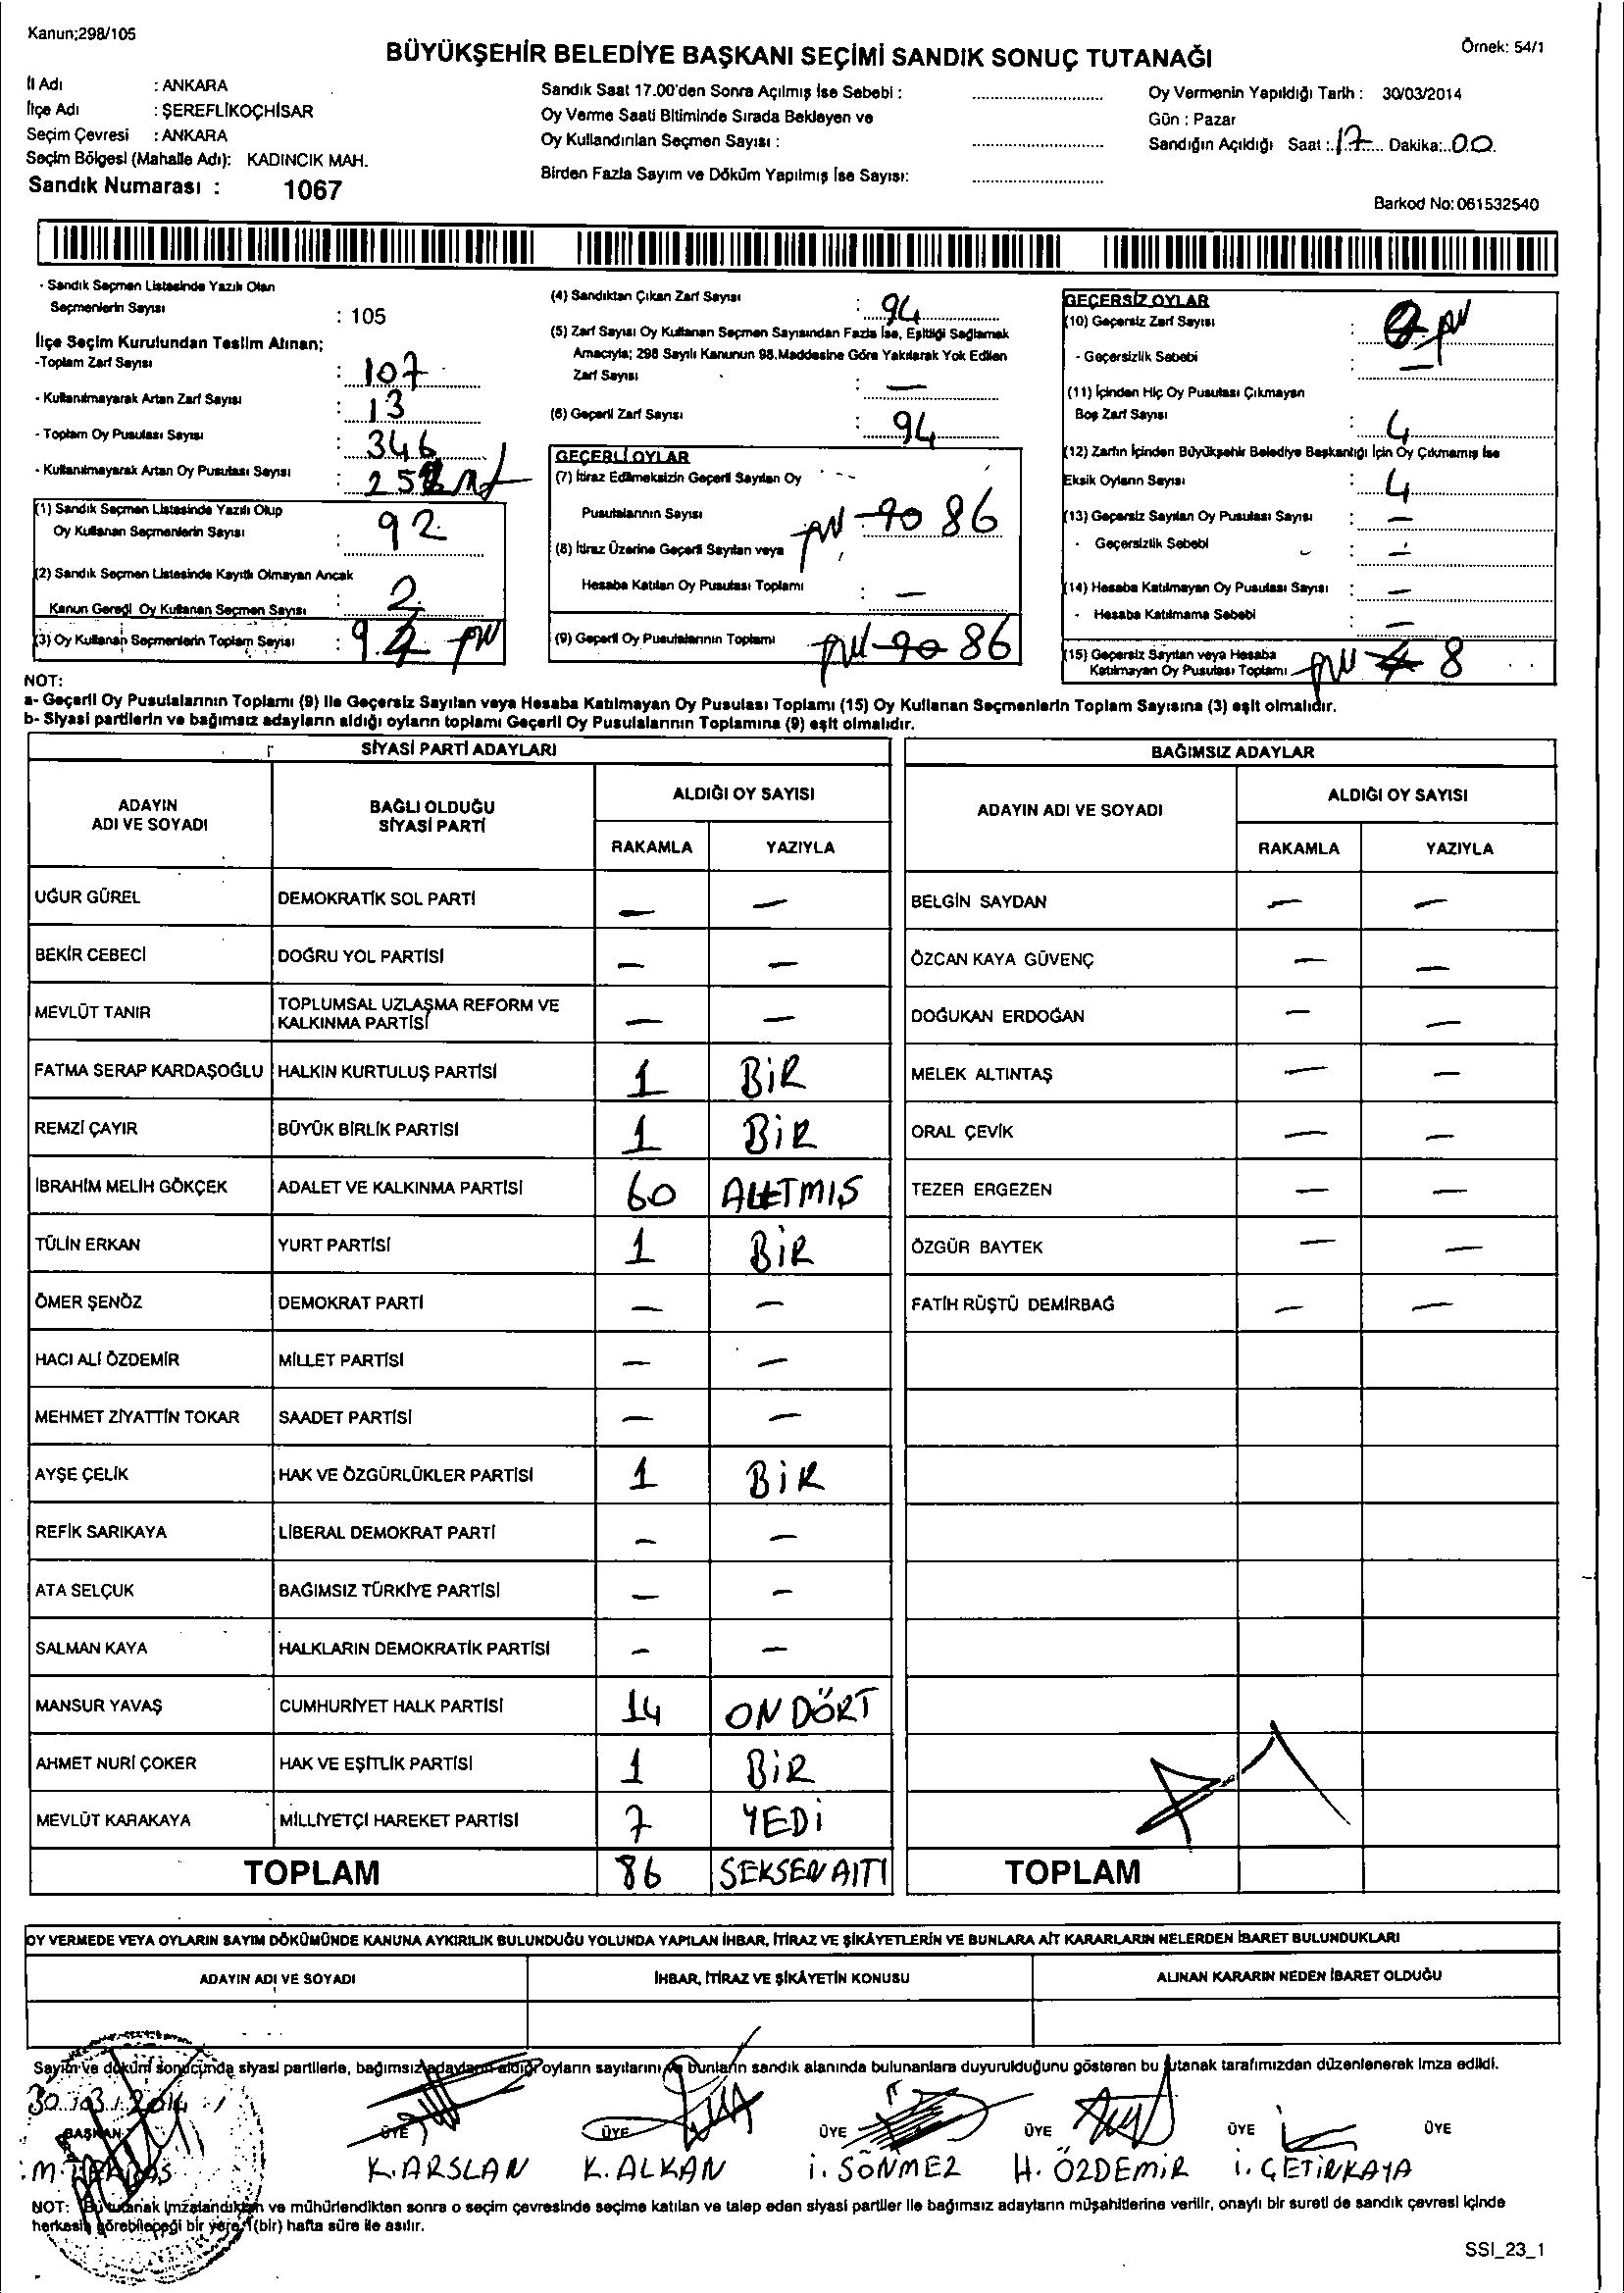 Kanun;298/105
Örnek: 54/1
BÜYÜKŞEHİR BELEDİYE BAŞKANI SEÇİMİ SANDIK SONUÇ TUTANAĞI
İl Adı : ANKARA
İlçe Adı : ŞEREFLİKOÇHİSAR
Seçim Çevresi : ANKARA
Seçim Bölgesi (Mahalle Adı): KADINCIK MAH.
Sandık Numarası : 1067
Sandık Saat 17.00'den Sonra Açılmış İse Sebebi :
Oy Verme Saati Bitiminde Sırada Bekleyen ve
Oy Kullandırılan Seçmen Sayısı :
Birden Fazla Sayım ve Döküm Yapılmış İse Sayısı:
Oy Vermenin Yapıldığı Tarih : 30/03/2014
Gün : Pazar
Sandığın Açıldığı Saat : 17 Dakika: 00
Barkod No: 061532540
- Sandık Seçmen Listesinde Yazılı Olan
Seçmenlerin Sayısı : 105
İlçe Seçim Kurulundan Teslim Alınan;
-Toplam Zarf Sayısı : 107
- Kullanılmayarak Artan Zarf Sayısı : 13
- Toplam Oy Pusulası Sayısı : 346
- Kullanılmayarak Artan Oy Pusulası Sayısı : 25
(1) Sandık Seçmen Listesinde Yazılı Olup
Oy Kullanan Seçmenlerin Sayısı : 92
(2) Sandık Seçmen Listesinde Kayıtlı Olmayan Ancak
Kanun Gereği Oy Kullanan Seçmen Sayısı : 2
(3) Oy Kullanan Seçmenlerin Toplam Sayısı : 94
(4) Sandıktan Çıkan Zarf Sayısı : 94
(5) Zarf Sayısı Oy Kullanan Seçmen Sayısından Fazla İse, Eşitliği Sağlamak
Amacıyla; 298 Sayılı Kanunun 98.Maddesine Göre Yakılarak Yok Edilen
Zarf Sayısı : —
(6) Geçerli Zarf Sayısı : 94
GEÇERLİ OYLAR
(7) İtiraz Edilmeksizin Geçerli Sayılan Oy
Pusulalarının Sayısı : 90 86
(8) İtiraz Üzerine Geçerli Sayılan veya
Hesaba Katılan Oy Pusulası Toplamı : —
(9) Geçerli Oy Pusulalarının Toplamı 90 86
GEÇERSİZ OYLAR
(10) Geçersiz Zarf Sayısı :
- Geçersizlik Sebebi : —
(11) İçinden Hiç Oy Pusulası Çıkmayan
Boş Zarf Sayısı : 4
(12) Zarfın İçinden Büyükşehir Belediye Başkanlığı İçin Oy Çıkmamış İse
Eksik Oyların Sayısı : 4
(13) Geçersiz Sayılan Oy Pusulası Sayısı : —
- Geçersizlik Sebebi : —
(14) Hesaba Katılmayan Oy Pusulası Sayısı : —
- Hesaba Katılmama Sebebi : —
(15) Geçersiz Sayılan veya Hesaba
Katılmayan Oy Pusulası Toplamı 4 8
NOT:
a- Geçerli Oy Pusulalarının Toplamı (9) İle Geçersiz Sayılan veya Hesaba Katılmayan Oy Pusulası Toplamı (15) Oy Kullanan Seçmenlerin Toplam Sayısına (3) eşit olmalıdır.
b- Siyasi partilerin ve bağımsız adayların aldığı oyların toplamı Geçerli Oy Pusulalarının Toplamına (9) eşit olmalıdır.
SİYASİ PARTİ ADAYLARI
ADAYIN ADI VE SOYADI BAĞLI OLDUĞU SİYASİ PARTİ ALDIĞI OY SAYISI
RAKAMLA YAZIYLA
UĞUR GÜREL DEMOKRATİK SOL PARTİ — —
BEKİR CEBECİ DOĞRU YOL PARTİSİ — —
MEVLÜT TANIR TOPLUMSAL UZLAŞMA REFORM VE KALKINMA PARTİSİ — —
FATMA SERAP KARDAŞOĞLU HALKIN KURTULUŞ PARTİSİ 1 BİR
REMZİ ÇAYIR BÜYÜK BİRLİK PARTİSİ 1 BİR
İBRAHİM MELİH GÖKÇEK ADALET VE KALKINMA PARTİSİ 60 ALTMIŞ
TÜLİN ERKAN YURT PARTİSİ 1 BİR
ÖMER ŞENÖZ DEMOKRAT PARTİ — —
HACI ALİ ÖZDEMİR MİLLET PARTİSİ — —
MEHMET ZİYATTİN TOKAR SAADET PARTİSİ — —
AYŞE ÇELİK HAK VE ÖZGÜRLÜKLER PARTİSİ 1 BİR
REFİK SARIKAYA LİBERAL DEMOKRAT PARTİ — —
ATA SELÇUK BAĞIMSIZ TÜRKİYE PARTİSİ — —
SALMAN KAYA HALKLARIN DEMOKRATİK PARTİSİ — —
MANSUR YAVAŞ CUMHURİYET HALK PARTİSİ 14 ON DÖRT
AHMET NURİ ÇOKER HAK VE EŞİTLİK PARTİSİ 1 BİR
MEVLÜT KARAKAYA MİLLİYETÇİ HAREKET PARTİSİ 7 YEDİ
TOPLAM 86 SEKSEN ALTI
BAĞIMSIZ ADAYLAR
ADAYIN ADI VE SOYADI ALDIĞI OY SAYISI
RAKAMLA YAZIYLA
BELGİN SAYDAN — —
ÖZCAN KAYA GÜVENÇ — —
DOĞUKAN ERDOĞAN — —
MELEK ALTINTAŞ — —
ORAL ÇEVİK — —
TEZER ERGEZEN — —
ÖZGÜR BAYTEK — —
FATİH RÜŞTÜ DEMİRBAĞ — —
TOPLAM
OY VERMEDE VEYA OYLARIN SAYIM DÖKÜMÜNDE KANUNA AYKIRILIK BULUNDUĞU YOLUNDA YAPILAN İHBAR, İTİRAZ VE ŞİKÂYETLERİN VE BUNLARA AİT KARARLARIN NELERDEN İBARET BULUNDUKLARI
ADAYIN ADI VE SOYADI İHBAR, İTİRAZ VE ŞİKÂYETİN KONUSU ALINAN KARARIN NEDEN İBARET OLDUĞU
Sayım ve döküm sonucunda siyasi partilerle, bağımsız adayların aldığı oyların sayılarını ve bunların sandık alanında bulunanlara duyurulduğunu gösteren bu tutanak tarafımızdan düzenlenerek imza edildi.
30.03.2014
BAŞKAN ÜYE ÜYE ÜYE ÜYE ÜYE ÜYE
K. ARSLAN K. ALKAN İ. SÖNMEZ H. ÖZDEMİR İ. ÇETİNKAYA
NOT: Bu tutanak imzalandıktan ve mühürlendikten sonra o seçim çevresinde seçime katılan ve talep eden siyasi partiler ile bağımsız adayların müşahitlerine verilir, onaylı bir sureti de sandık çevresi içinde
herkesin görebileceği bir yere, 1(bir) hafta süre ile asılır.
SSI_23_1